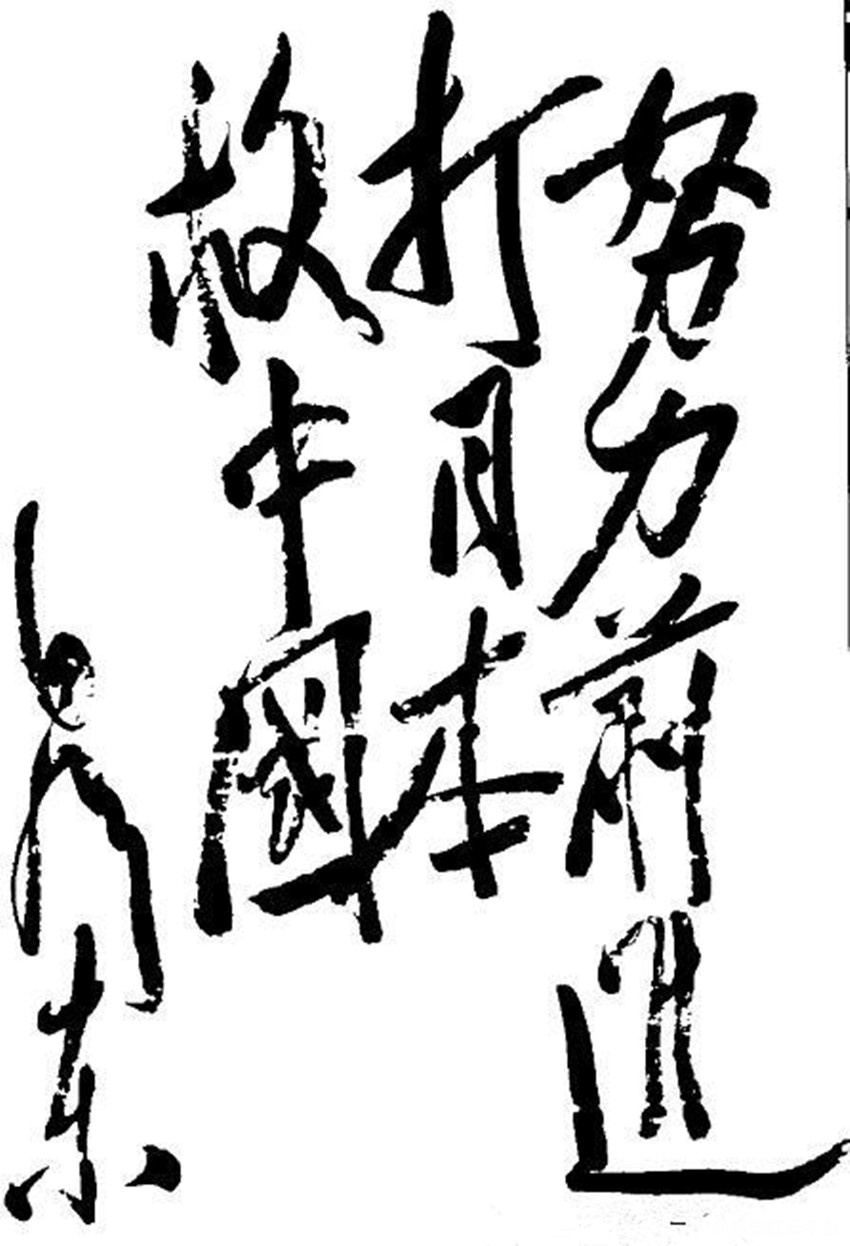 努力前進
打日本
救中國
毛泽东